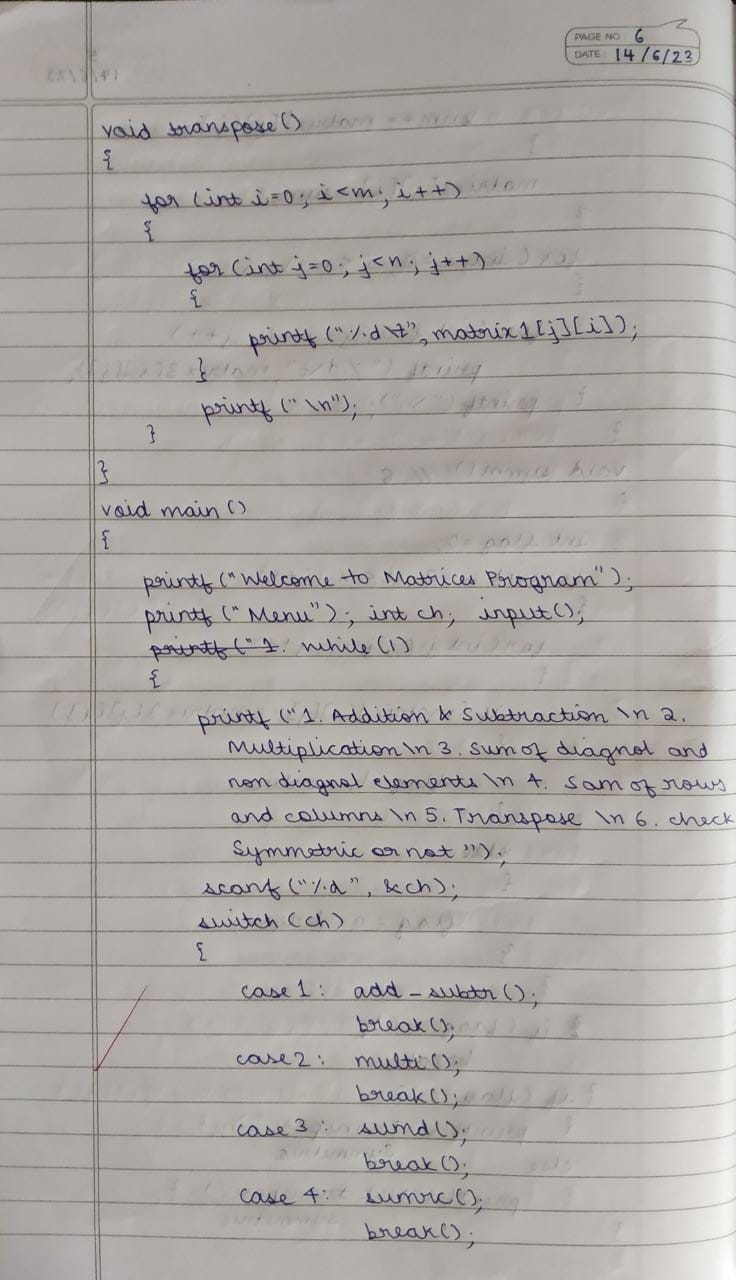 PAGE NO 6
DATE: 14/6/23
void transpose()
{
for (int i=0; i<m; i++)
{
for (int j=0; j<n; j++)
{
printf ("%d\t", matrix1[j][i]);
}
printf ("\n");
}
}
void main ()
{
printf ("Welcome to Matrices Program");
printf ("Menu"); int ch; input();
printf ("1. while (1)
{
printf ("1. Addition & Subtraction \n 2.
Multiplication \n 3. Sum of diagnol and
non diagnol elements \n 4. Sum of rows
and columns \n 5. Transpose \n 6. check
Symmetric or not ");
scanf ("%d", &ch);
switch (ch)
{
case 1: add_subtr ();
break();
case 2: multi();
break();
case 3: sumd();
break();
case 4: sumrc();
break();